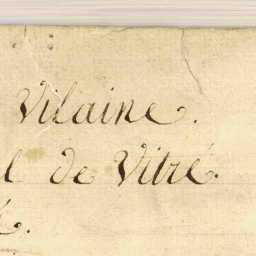 Vilaine.
l de Vitré.